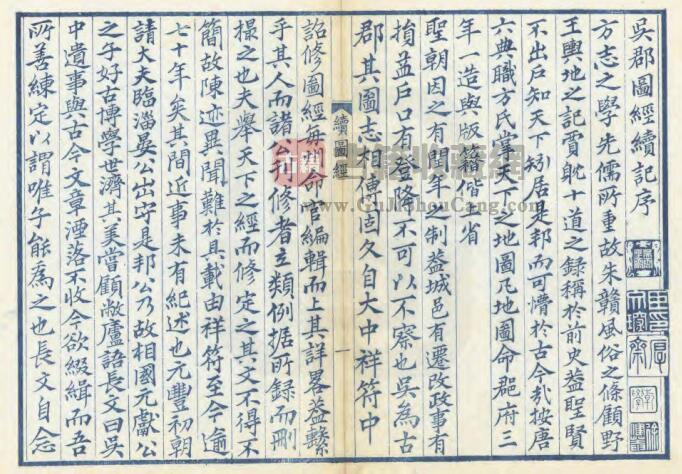 吳郡圖經續記序
方志之學先儒所重故朱贛風俗之條顧野
王輿地之記賈耽十道之録稱於前史蓋聖賢
不出戶知天下矧居是邦而可懵於古今哉按唐
六典職方氏掌天下之地圖凡地圖命郡府三
年一造與版籍偕上省
聖朝因之有閏年之制蓋城邑有遷改政事有
損益戶口有登降不可以不察也吳為古
郡其圖志相傳固久自大中祥符中
續圖經
一
詔修圖經每州命官編輯而上其詳畧蓋繫
乎其人而諸公刊修者立類例據所録而刪
撮之也夫舉天下之經而修定之其文不得不
簡故陳迹異聞難於具載由祥符至今逾
七十年矣其間近事未有紀述也元豐初朝
請大夫臨淄晏公出守是邦公乃故相國元獻公
之子好古博學世濟其美嘗顧敝廬語長文曰吳
中遺事與古今文章湮落不收今欲綴緝而吾
所善練定以謂唯子能為之也長文自念
www.GuJiShouCang.com